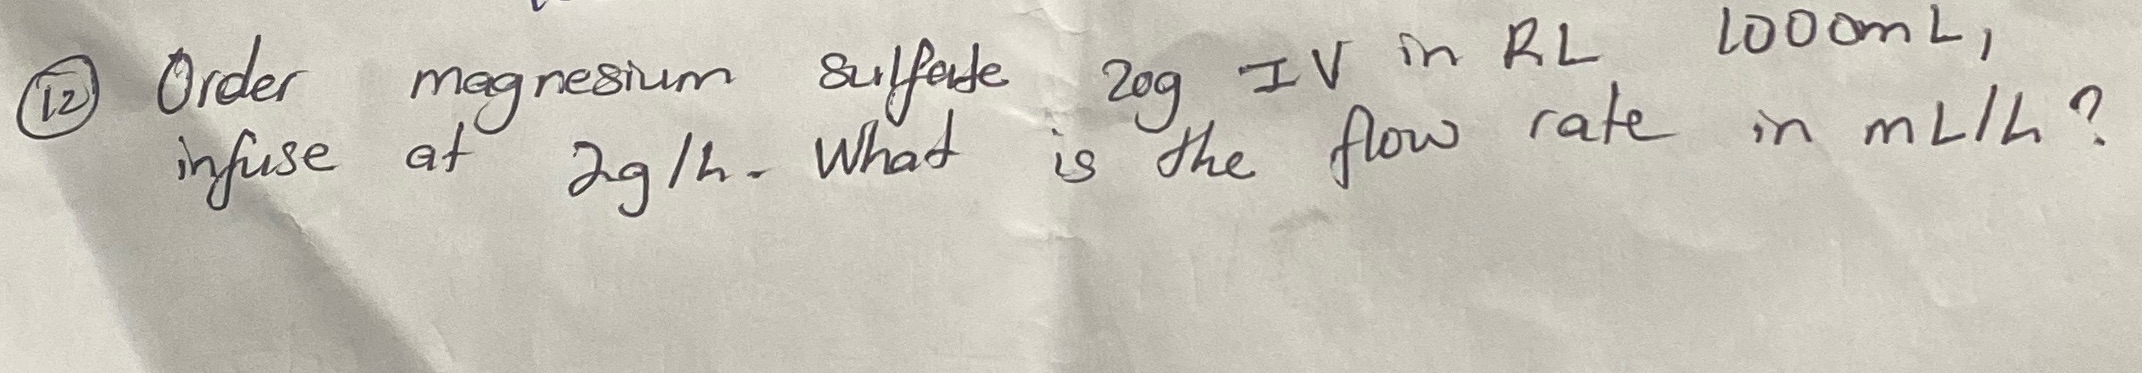 12 Order magnesium sulfate 20g IV in RL 1000mL,
infuse at 2g/h. What is the flow rate in mL/h?